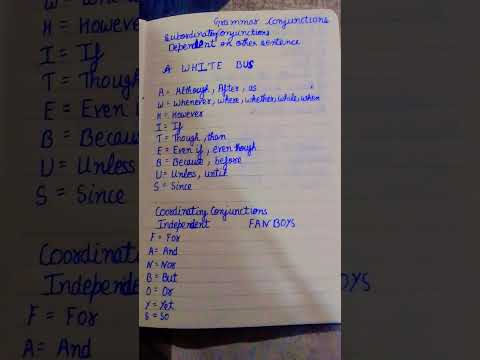 Grammar Conjunctions
Subordinating Conjunctions
Dependent on other sentence
A WHITE BUS
A = Although, After, as
W = Whenever, where, whether, while, when
H = However
I = If
T = Though, than
E = Even if, even though
B = Because, before
U = Unless, until
S = Since
Coordinating Conjunctions
Independent FANBOYS
F = For
A = And
N = Nor
B = But
O = Or
Y = Yet
S = So
H = How
I = If
T = Thou
E = Even i
B = Becau
U = Unless
S = Since
Coordinatin
Independen
F = For
A = And
BOYS